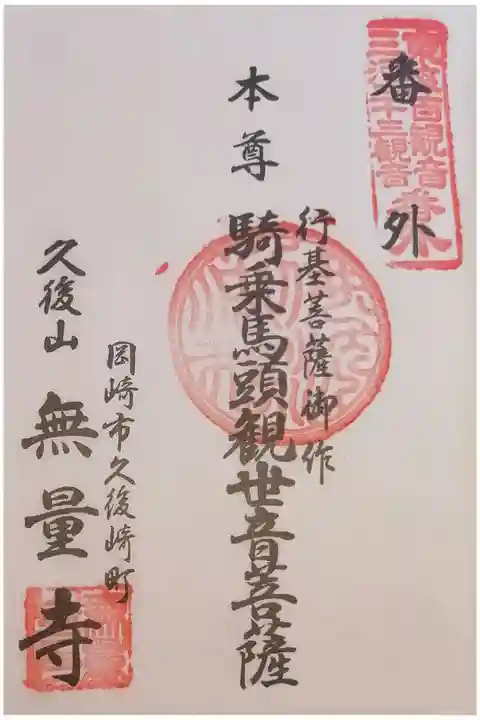 番外
三河三十三観音
番外
本尊
行基菩薩御作
騎乗馬頭観世音菩薩
岡崎市久後崎町
久後山 無量寺